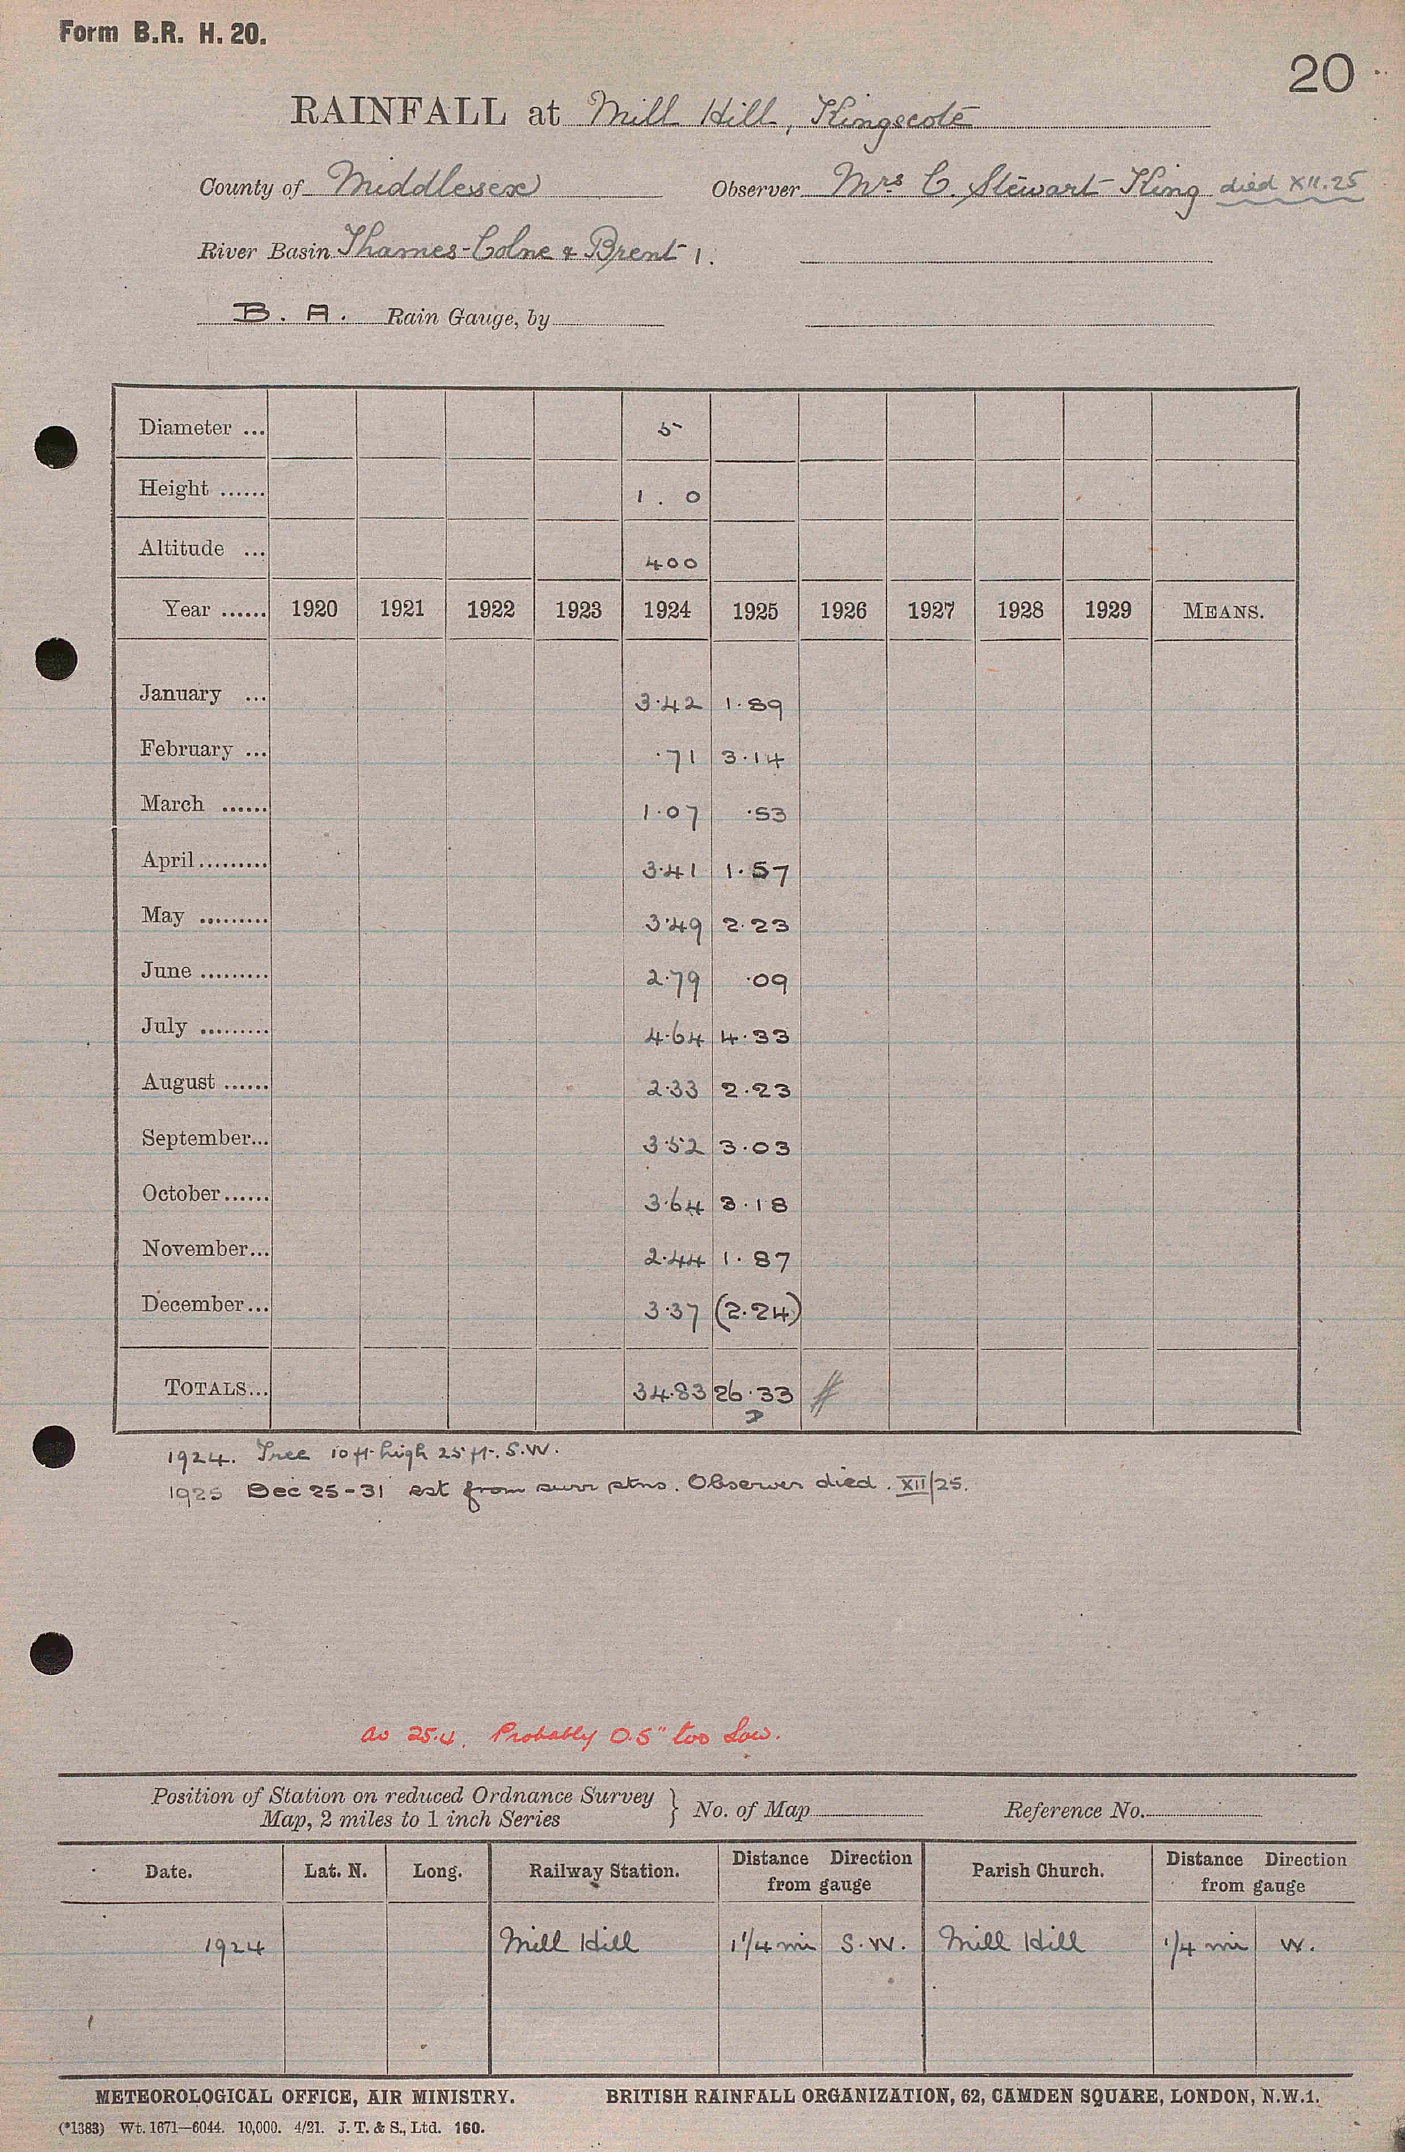 Form B.R. H. 20.
20
RAINFALL at Mill Hill, Kingscote
County of Middlesex Observer Mrs C. Stewart King died XII.25
River Basin Thames-Colne & Brent 1.
B. A. Rain Gauge, by
Diameter ... 5
Height ...... 1 . 0
Altitude ... 400
Year ...... 1920 1921 1922 1923 1924 1925 1926 1927 1928 1929 MEANS.
January ... 3.42 1.89
February ... .71 3.14
March ...... 1.07 .53
April......... 3.41 1.57
May ......... 3.49 2.23
June ......... 2.79 .09
July ......... 4.64 4.33
August ...... 2.33 2.23
September... 3.52 3.03
October...... 3.64 3.18
November... 2.44 1.87
December... 3.37 (2.24)
TOTALS... 34.83 26.33
1924. Tree 10 ft high 25 ft. S.W.
1925 Dec 25-31 est from surr stns. Observer died. XII/25.
av 25.4. Probably 0.5" too low.
Position of Station on reduced Ordnance Survey
Map, 2 miles to 1 inch Series } No. of Map Reference No.
Date. Lat. N. Long. Railway Station. Distance Direction from gauge Parish Church. Distance Direction from gauge
1924 Mill Hill 1 1/4 mi S.W. Mill Hill 1/4 mi W.
METEOROLOGICAL OFFICE, AIR MINISTRY. BRITISH RAINFALL ORGANIZATION, 62, CAMDEN SQUARE, LONDON, N.W.1.
(*1383) Wt. 1671—6044. 10,000. 4/21. J. T. & S., Ltd. 160.